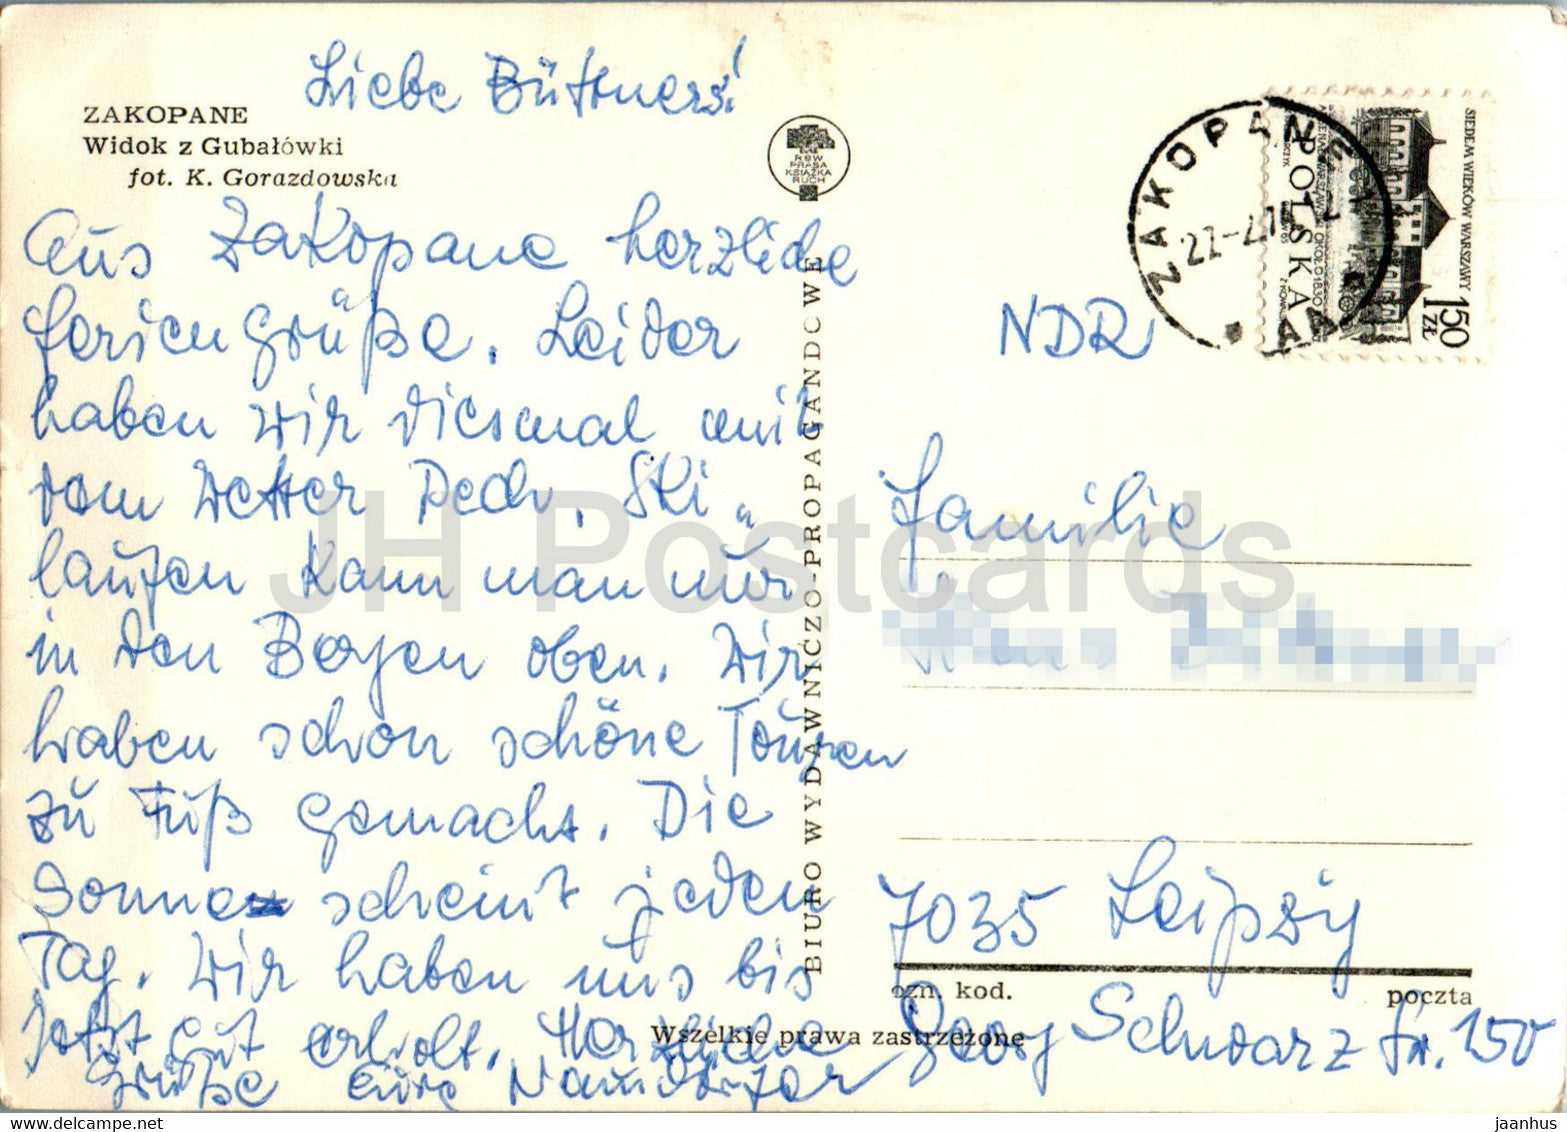 Liebe Büttners!
ZAKOPANE
Widok z Gubałówki
fot. K. Gorazdowska
Aus Zakopane herzliche
Feriengrüße. Leider
haben wir diesmal mit
dem Wetter Pech, Ski„
laufen kann man nur
in den Bergen oben. Wir
haben schon schöne Touren
zu Fuß gemacht. Die
Sonne scheint jeden
Tag. Wir haben uns bis
jetzt gut erholt. Herzliche
Grüße Eure
RSW
PRASA
KSIĄŻKA
RUCH
BIURO WYDAWNICZO-PROPAGANDOWE
ZAKOPANE
POLSKA
SIEDEM WIEKÓW WARSZAWY
150 ZŁ
NDR
Familie
7035 Leipzig
ozn. kod.
poczta
Wszelkie prawa zastrzeżone
Georg Schwarz Str. 150
JH Postcards
jaanhus @ delcampe.net